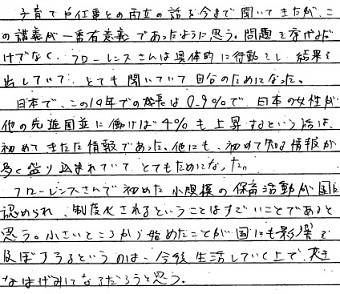 子育てや仕事との両立の話を今まで聞いてきたが、こ
の講義が一番有意義であったように思う。問題を挙げるだ
けでなく、フローレンスさんは具体的に行動をし、結果を
出していて、とても聞いていて自分のためになった。
日本で、この10年での成長は0.9%で、日本の女性が
他の先進国並に働けば4%も上昇するという話は、
初めてきいた情報であった。他にも、初めて知る情報が
多く盛り込まれていて、とてもためになった。
フローレンスさんで初めた小規模の保育活動が国に
認められ、制度化されるということはすごいことであると
思う。小さいところから始めたことが国にも影響を
及ぼすうるというのは、今後生活していく上で、大き
なはげみになるだろうと思う。